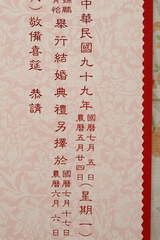 中華民國九十九年國曆七月五日農曆五月廿四日(星期一)
舉行結婚典禮另擇於國曆七月十七日農曆六月六日
)敬備喜筵 恭請